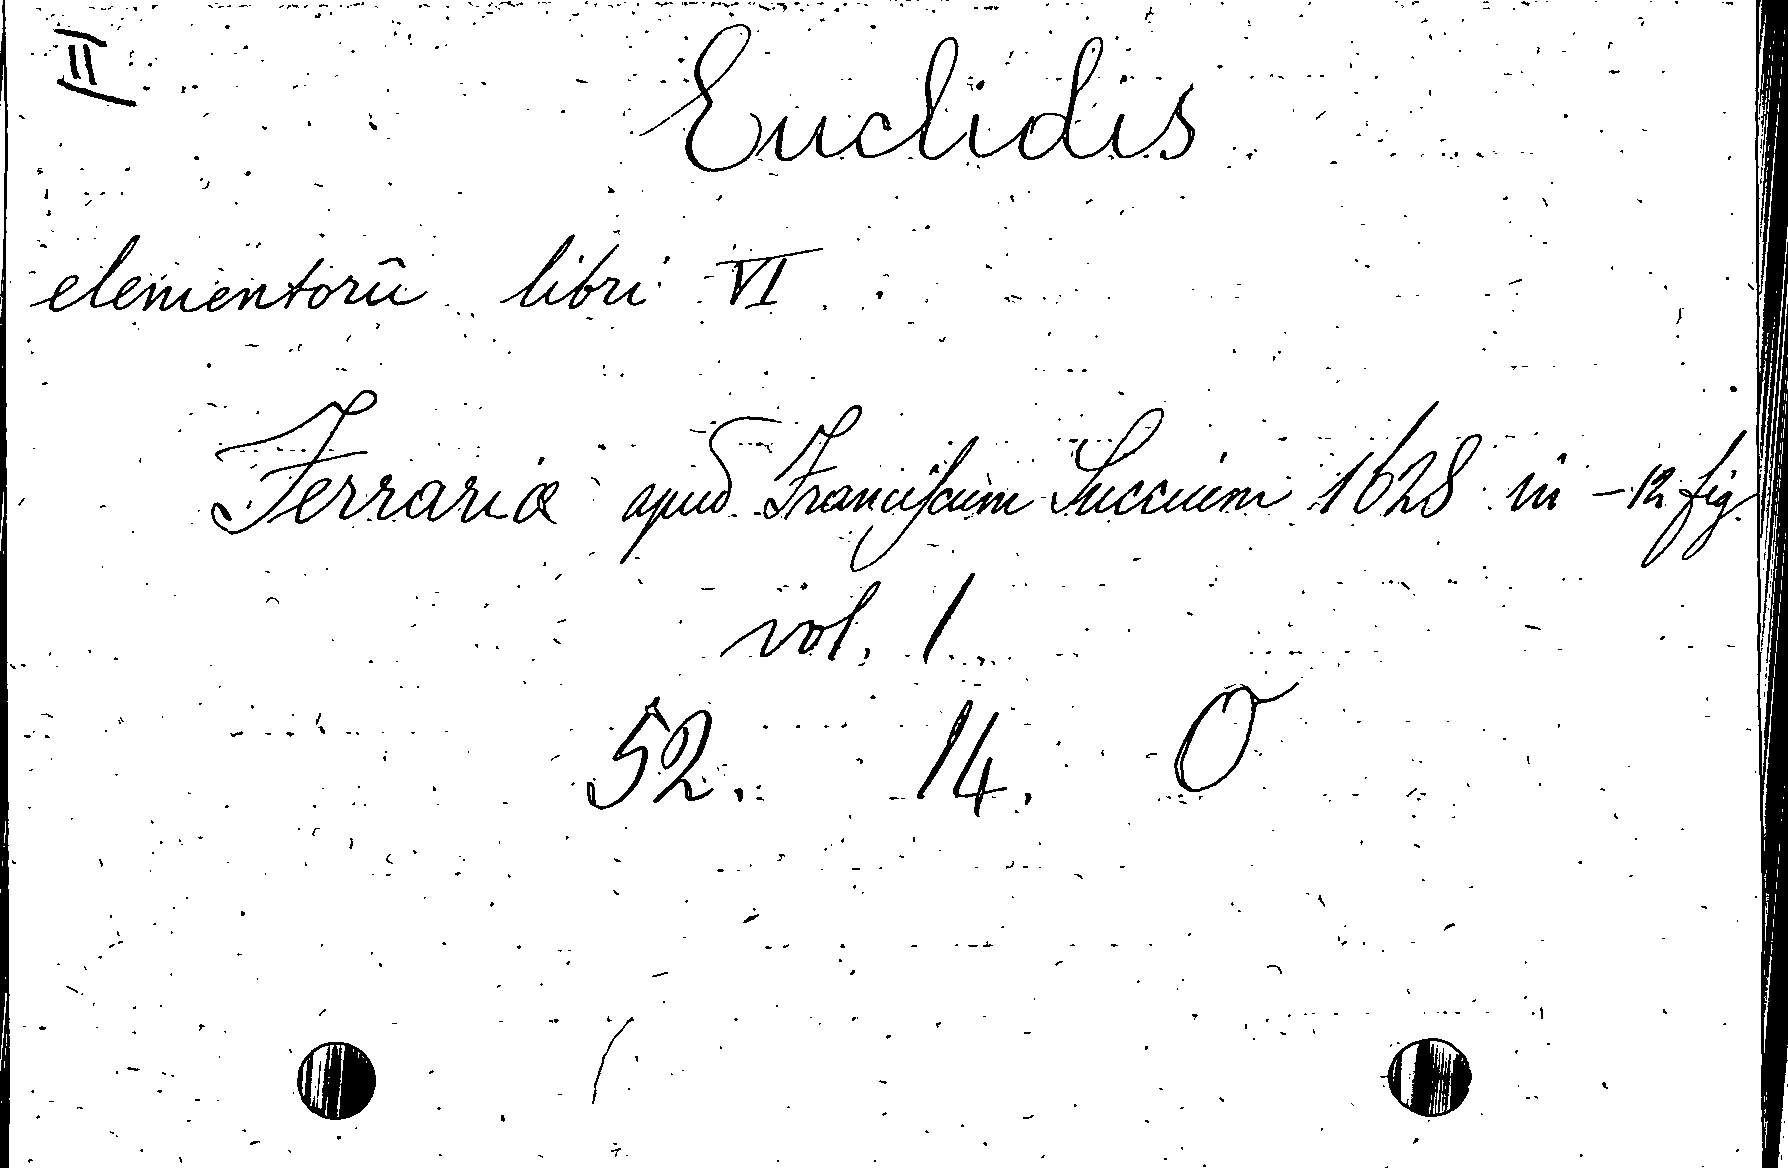 II
Euclidis
elementorū libri VI
Ferrariæ apud Franciscum Succium 1628 in-12 fig.
vol. 1.
52. 14. O